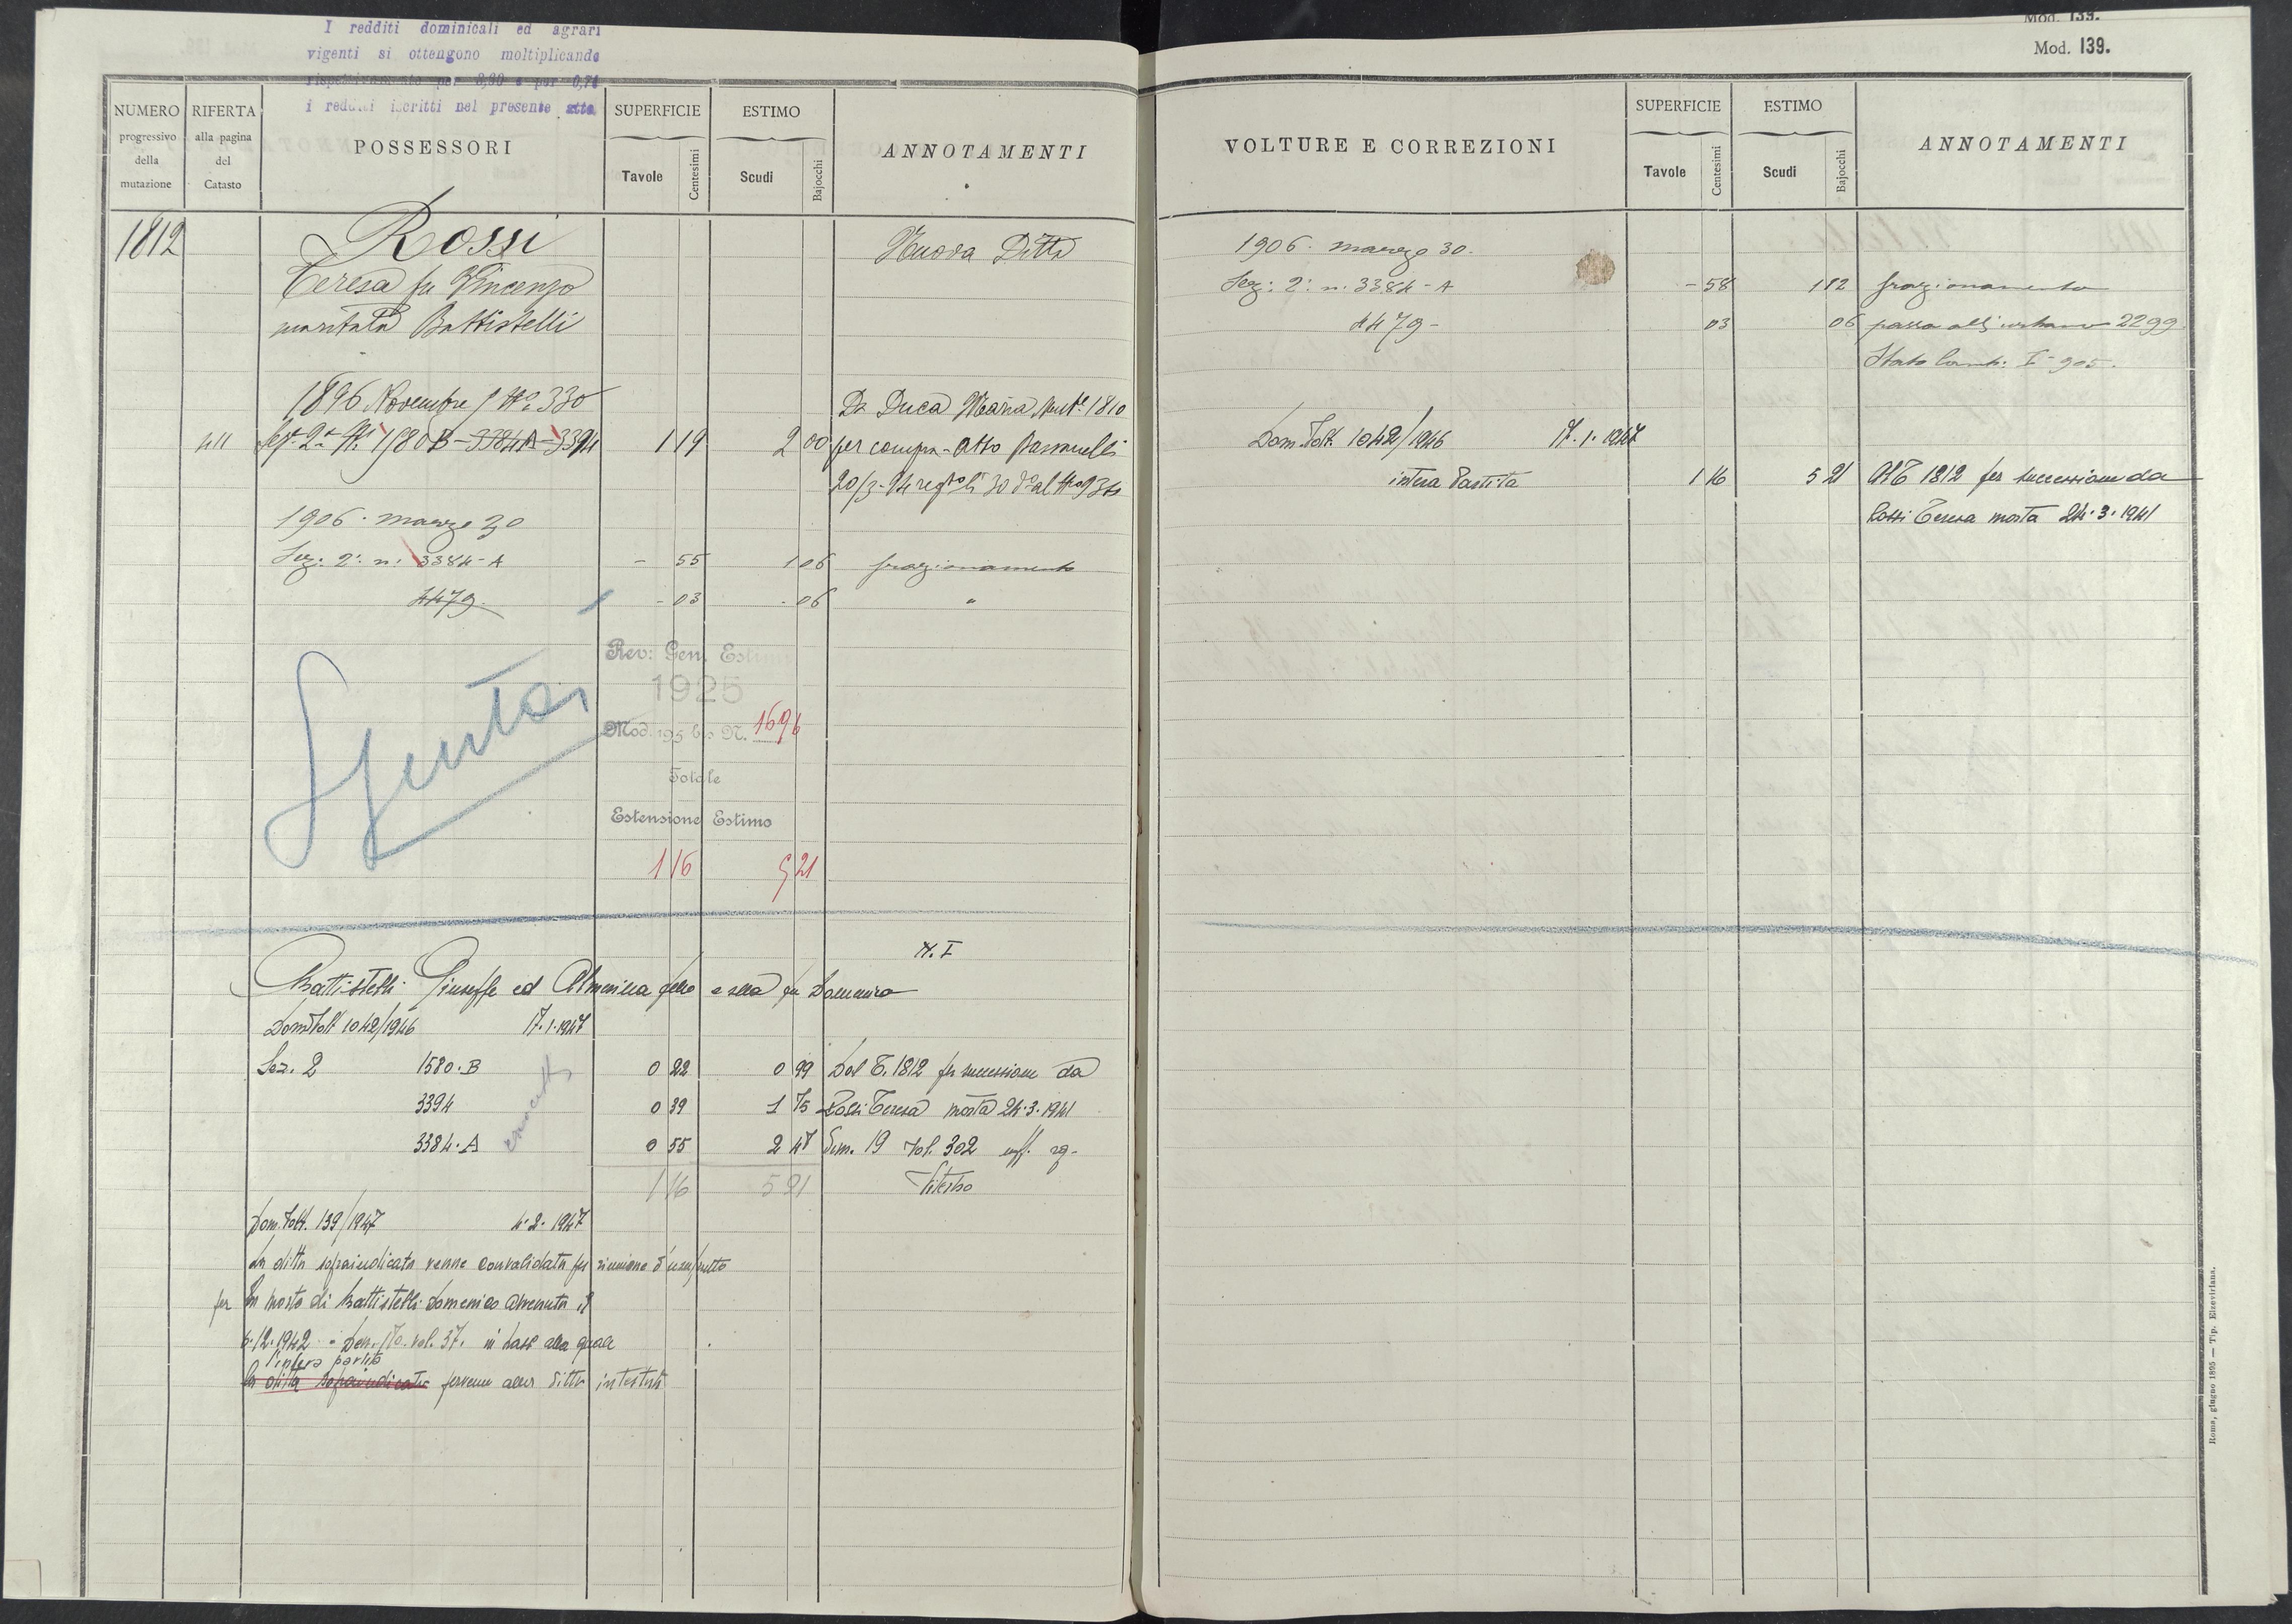 I redditi dominicali ed agrari
vigenti si ottengono moltiplicando
rispettivamente per 8,30 e per 0,74
i redditi iscritti nel presente atto
NUMERO
progressivo
della
mutazione
RIFERTA
alla pagina
del
Catasto
POSSESSORI
SUPERFICIE
Tavole
Centesimi
ESTIMO
Scudi
Bajocchi
ANNOTAMENTI
1812
Rossi
Nuova Ditta
Teresa fu Vincenzo
maritata Battistelli
1896 Novembre 1 No 330
Da Duca Maria Mut.e 1810
411 Sez.e 2.a Ni 1580 B - 3384 A - 3394 1 19 2 00 per compra - Atto
20/3 - 94 30
1906 - marzo 30
Sez: 2: n: 3384 - A - 55 1 06 frazionamento
4479 - 03 - 06 "
Rev: Gen. Estimi
1925
Mod. 195 bis N. 1696
Spenta
Totale
Estensione Estimo
1 16 5 21
N. I
Battistelli Giuseppe ed Almerina fllo e slla fu Domenico
Dom Volt 1042/1946 17.1.1947
Sez. 2 1580 - B 0 22 0 99 Dal T. 1812 per successione da
3394 0 39 1 75 Rossi Teresa morta 24.3.1941
3384 - A 0 55 2 47 Den. 19 vol. 302 uff. rg.
1 16 5 21 Viterbo
Dom. Volt. 139/1947 4.2.1947
La ditta sopraindicata venne convalidata per riunione d'usufrutto
per la morte di Battistelli Domenico avvenuta il
6.12.1942 - Den. 170. vol. 37. in base alla quale
l'intera partita
la ditta sopraindicata pervenne alla ditta intestata
Mod. 139.
Mod. 139.
VOLTURE E CORREZIONI
SUPERFICIE
Tavole
Centesimi
ESTIMO
Scudi
Bajocchi
ANNOTAMENTI
1906 - marzo 30.
Sez: 2: n: 3384 - A - 58 1 12 frazionamento
4479 - 03 06 passa all' urbano 2299
Stato Camb: I - 905.
Dom. Volt. 1042/1946 17.1.1947
intera Partita 1 16 5 21 Al T 1812 per successione da
Rossi Teresa morta 24.3.1941
Roma, giugno 1895 — Tip. Elzeviriana.